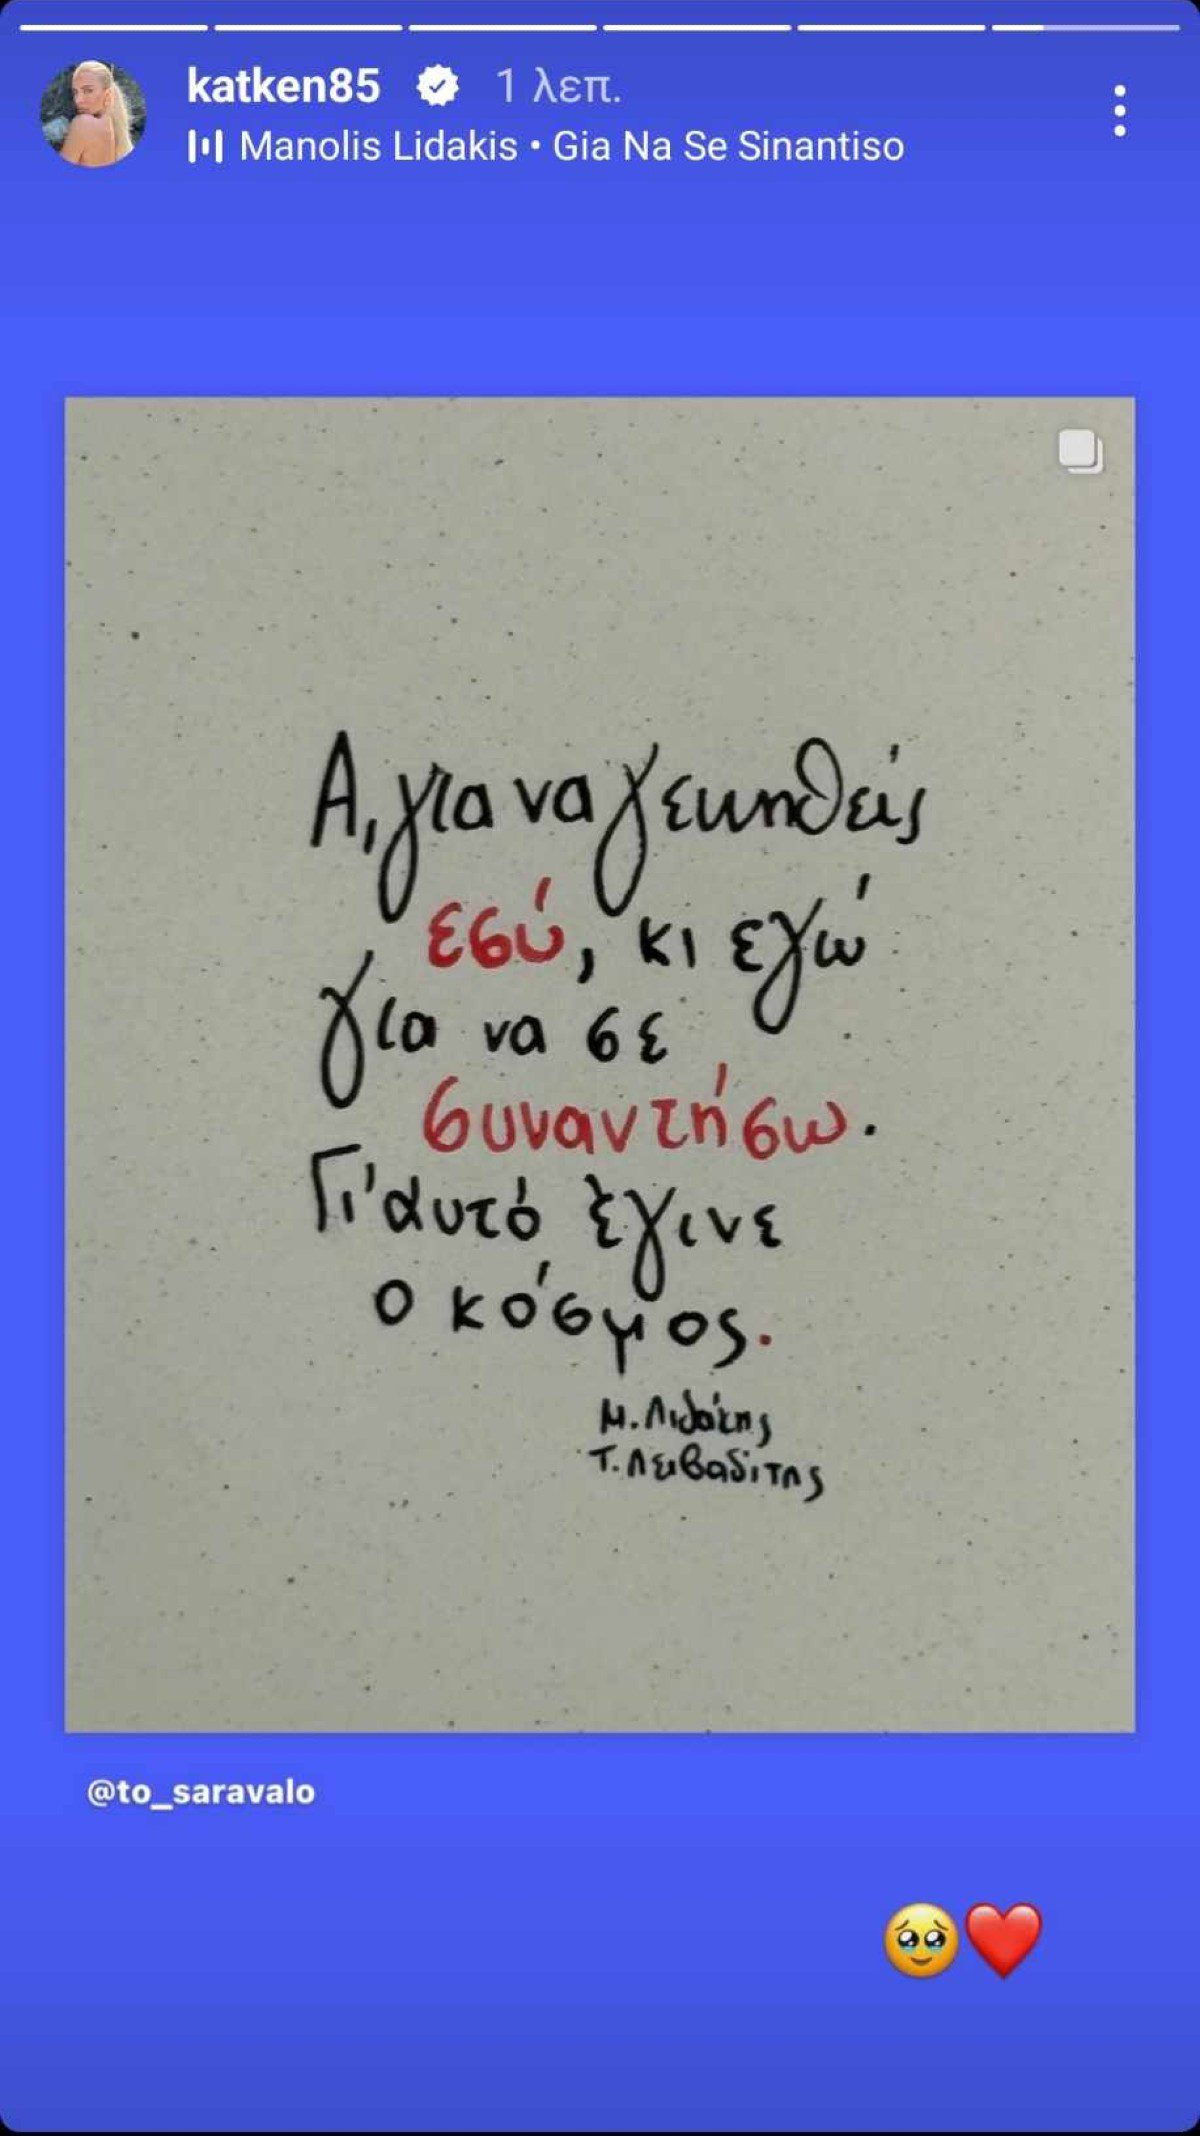 katken85 1 λεπ.
Manolis Lidakis • Gia Na Se Sinantiso
Α, για να γεννηθείς
εσύ, κι εγώ
για να σε
συναντήσω.
Γι'αυτό έγινε
ο κόσμος.
Μ. Λιδάκης
Τ. Λειβαδίτης
@to_saravalo